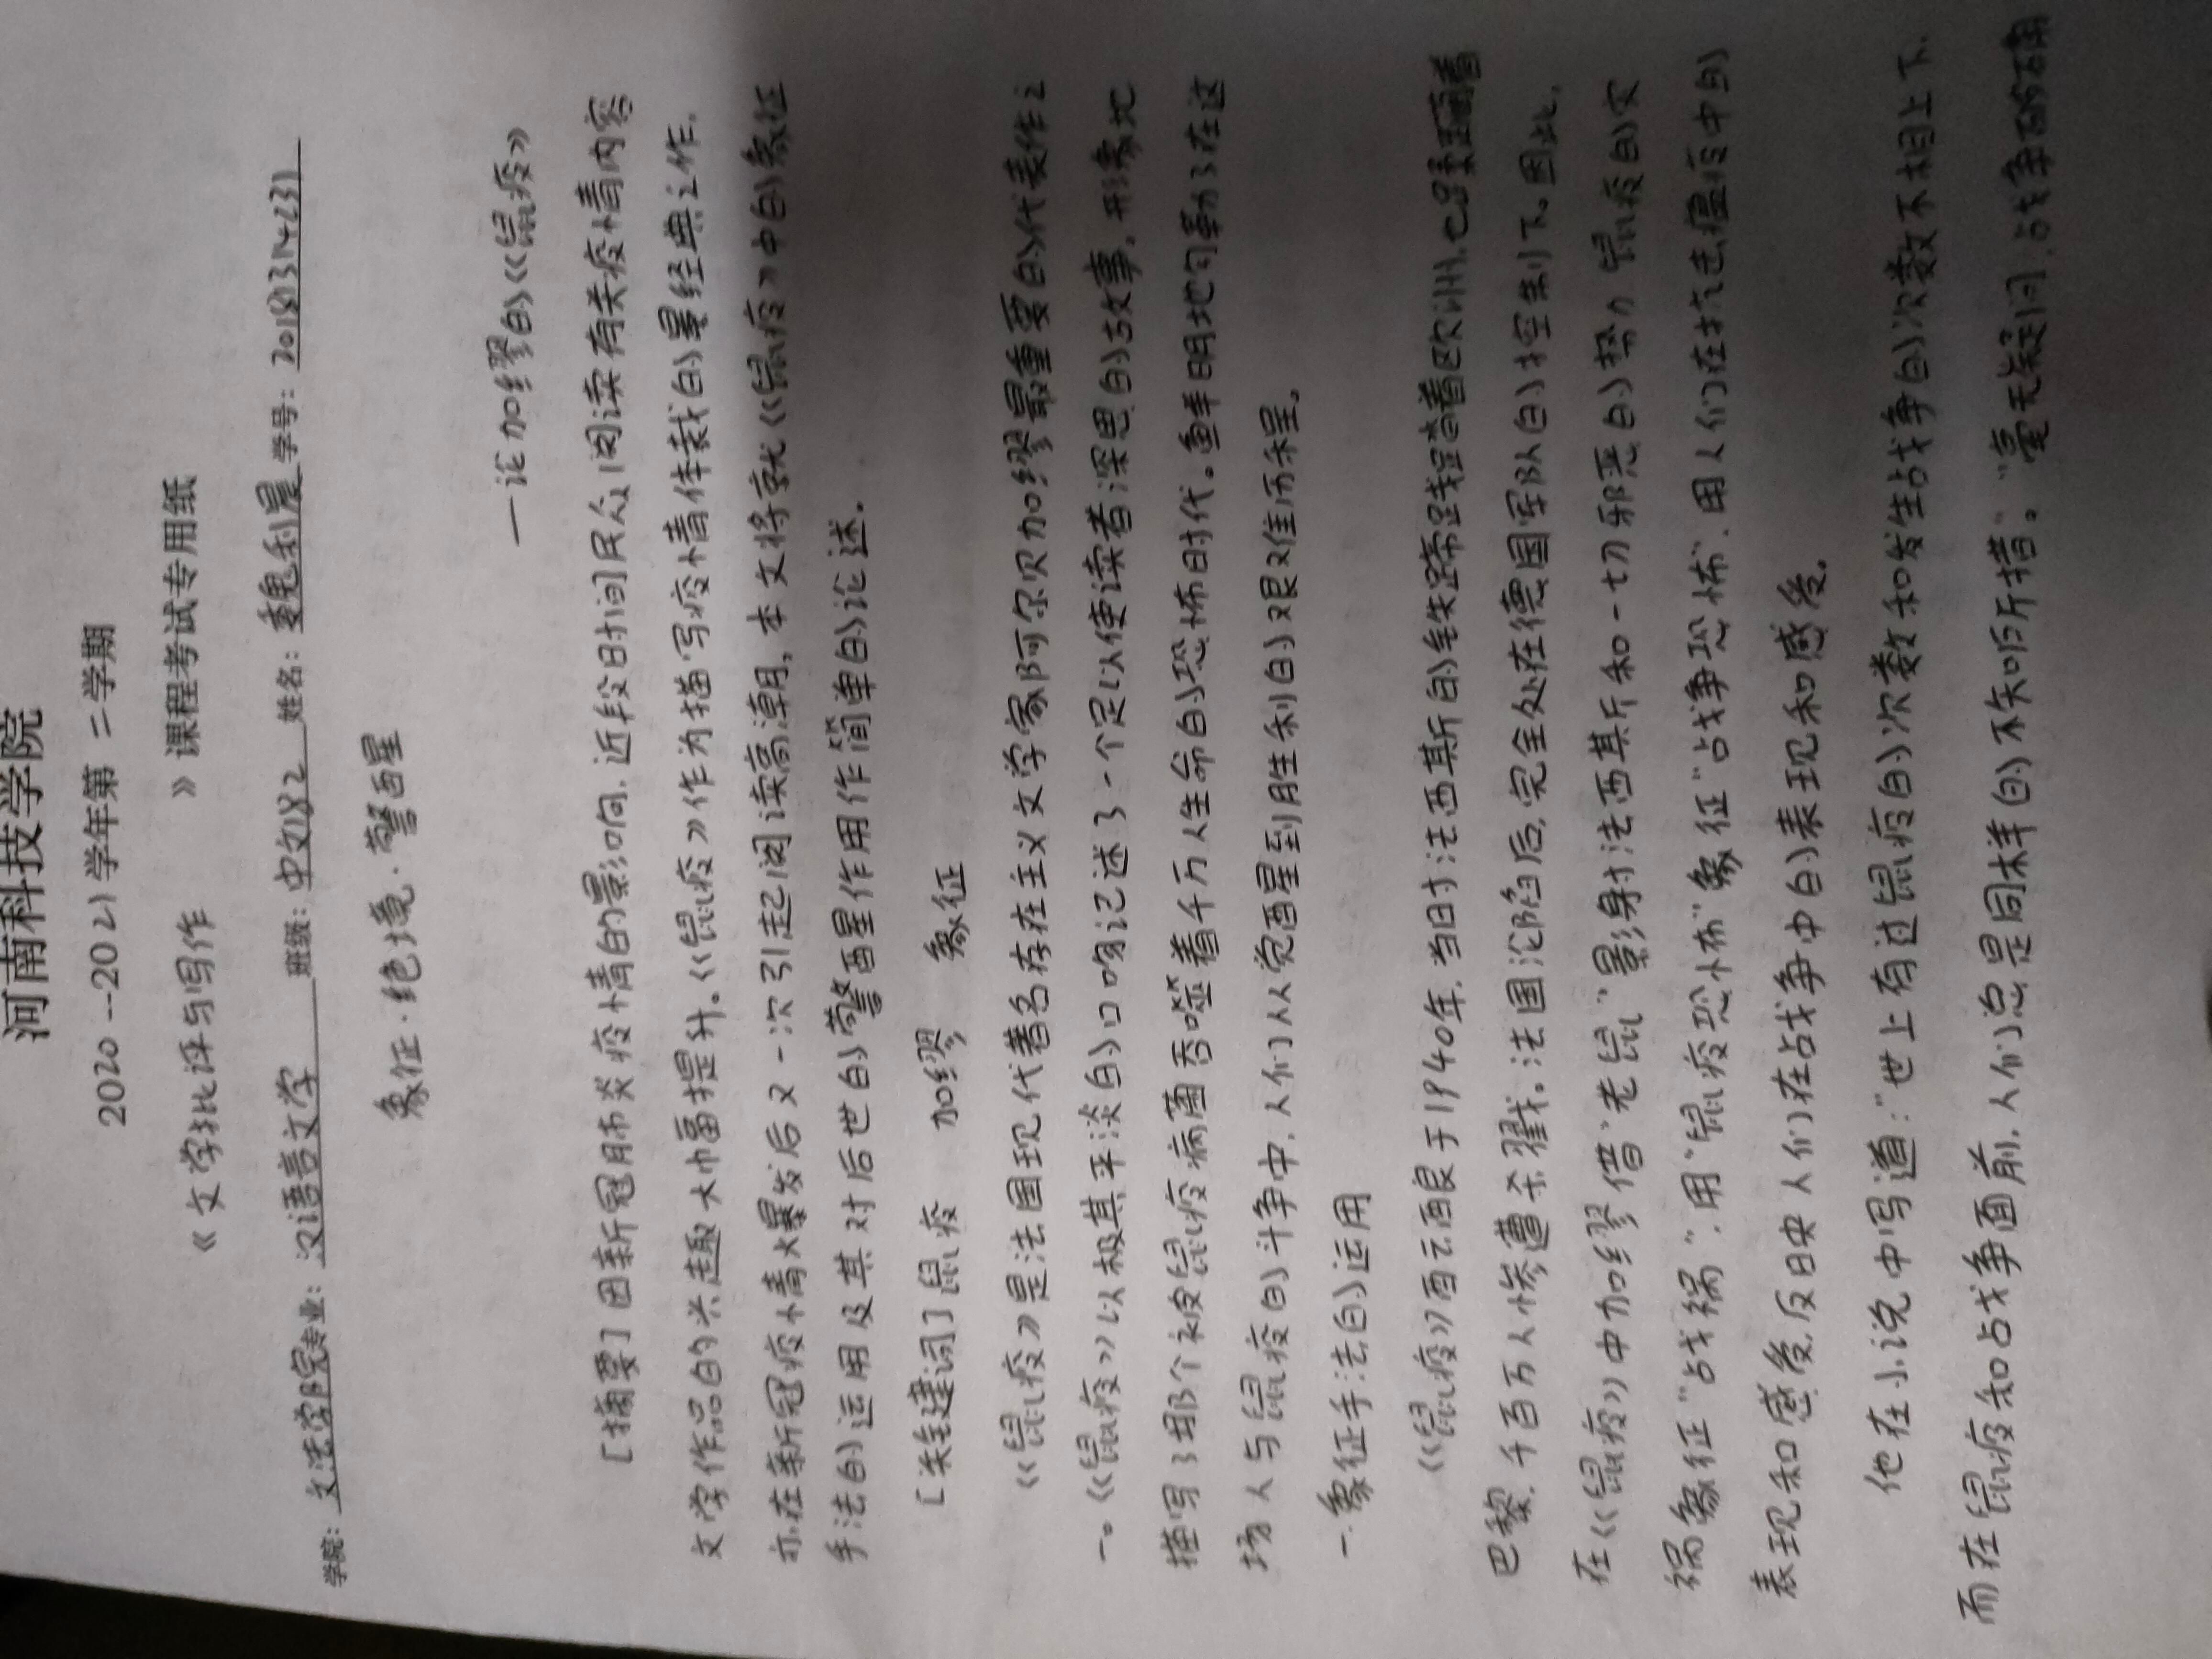 河南科技学院
2020--2021学年第 二 学期
《 文学批评与写作 》课程考试专用纸
学院：文法学院 专业：汉语言文学 班级：中文182 姓名：魏利晨 学号：20181314231
象征·绝境·警醒
—论加缪的《鼠疫》
[摘要] 因新冠肺炎疫情的影响，近段时间民众阅读有关疫情内容
文学作品的兴趣大幅提升。《鼠疫》作为描写疫情体裁的最经典之作，
亦在新冠疫情大爆发后又一次引起阅读高潮，本文将就《鼠疫》中的象征
手法的运用及其对后世的警醒作用作简单的论述。
[关键词] 鼠疫 加缪 象征
《鼠疫》是法国现代著名存在主义文学家阿尔贝加缪最重要的代表作之
一。《鼠疫》以极其平淡的口吻记述了一个足以使读者深思的故事，形象地
描写了那个被鼠疫病菌吞噬着千万人生命的恐怖时代。鲜明地勾勒了在这
场人与鼠疫的斗争中，人们从觉醒到胜利的艰难历程。
一.象征手法的运用
《鼠疫》酝酿于1940年，当时法西斯的铁蹄践踏着欧洲，也蹂躏着
巴黎，千百万人惨遭杀戮。法国沦陷后，完全处在德国军队的控制下。因此，
在《鼠疫》中加缪借“老鼠”影射法西斯和一切邪恶的势力鼠疫的灾
祸象征“战祸”，用“鼠疫恐怖”象征“战争恐怖”，用人们在抗击瘟疫中的
表现和感受，反映人们在战争中的表现和感受。
他在小说中写道：“世上有过鼠疫的次数和发生战争的次数不相上下，
而在鼠疫和战争面前，人们总是同样的不知所措。”毫无疑问，战争的确